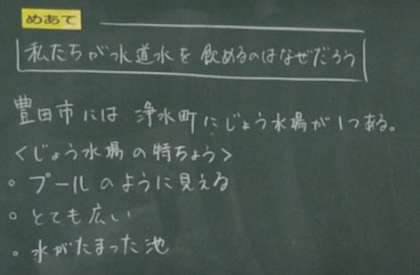 めあて
私たちが水道水を飲めるのはなぜだろう
豊田市には浄水町にじょう水場が1つある。
<じょう水場の特ちょう>
。プールのように見える
。とても広い
。水がたまった池